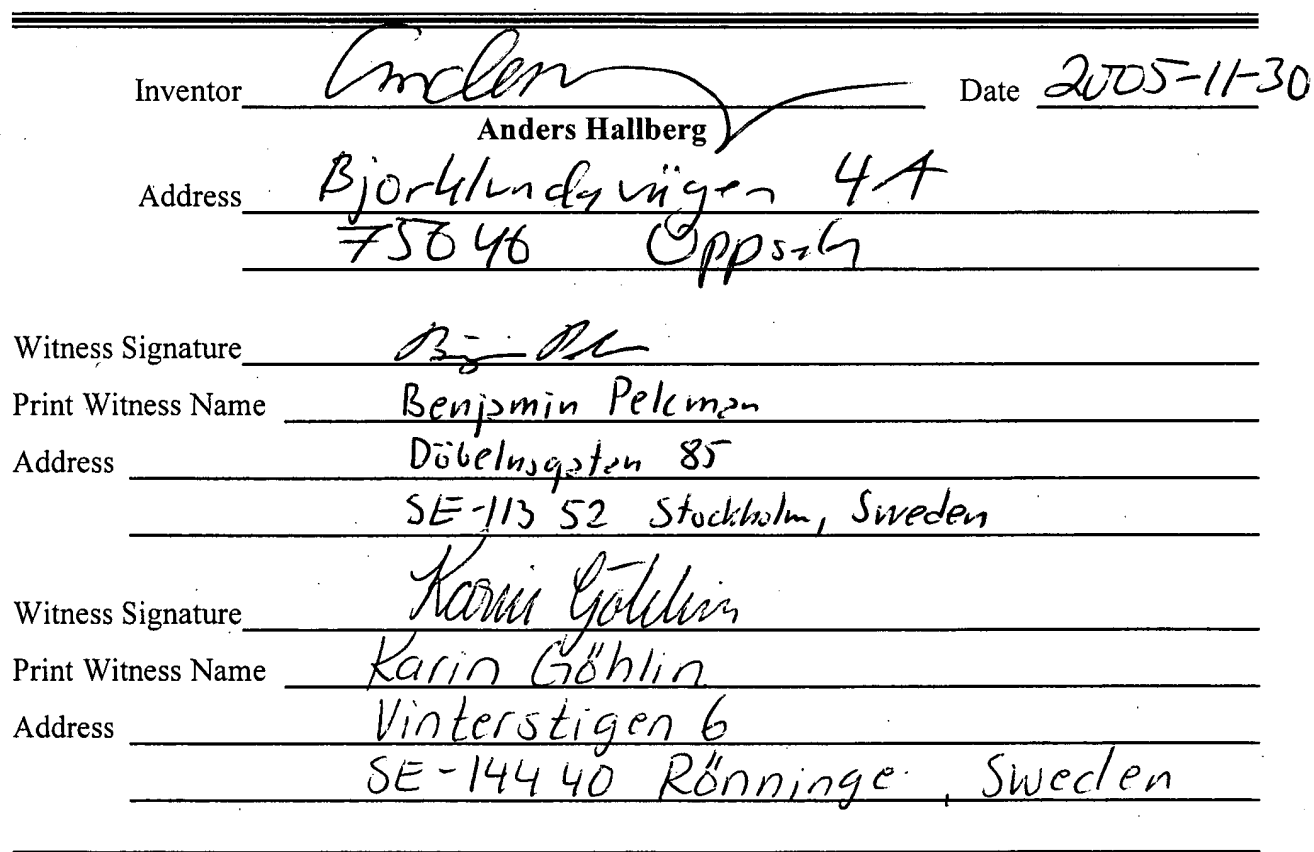 Inventor Date 2005-11-30
Anders Hallberg
Address Björklundsvägen 4A
75646 Uppsala
Witness Signature
Print Witness Name Benjamin Pelcman
Address Döbelnsgatan 85
SE-113 52 Stockholm, Sweden
Witness Signature Karin Göhlin
Print Witness Name Karin Göhlin
Address Vinterstigen 6
SE-144 40 Rönninge, Sweden